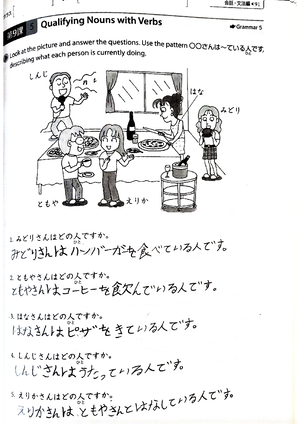 会話・文法編◀91
第9課 5 Qualifying Nouns with Verbs
☛Grammar 5
Look at the picture and answer the questions. Use the pattern 〇〇さんは〜ている人です,
ひと
describing what each person is currently doing.
しんじ
はな
みどり
ともや
えりか
1. みどりさんはどの人ですか。
ひと
みどりさんはハンバーガーを食べている人です。
2. ともやさんはどの人ですか。
ひと
ともやさんはコーヒーを飲んでいる人です。
3. はなさんはどの人ですか。
ひと
はなさんはピザをきている人です。
4. しんじさんはどの人ですか。
ひと
しんじさんはうたっている人です。
5. えりかさんはどの人ですか。
ひと
えりかさんは、ともやさんとはなしている人です。